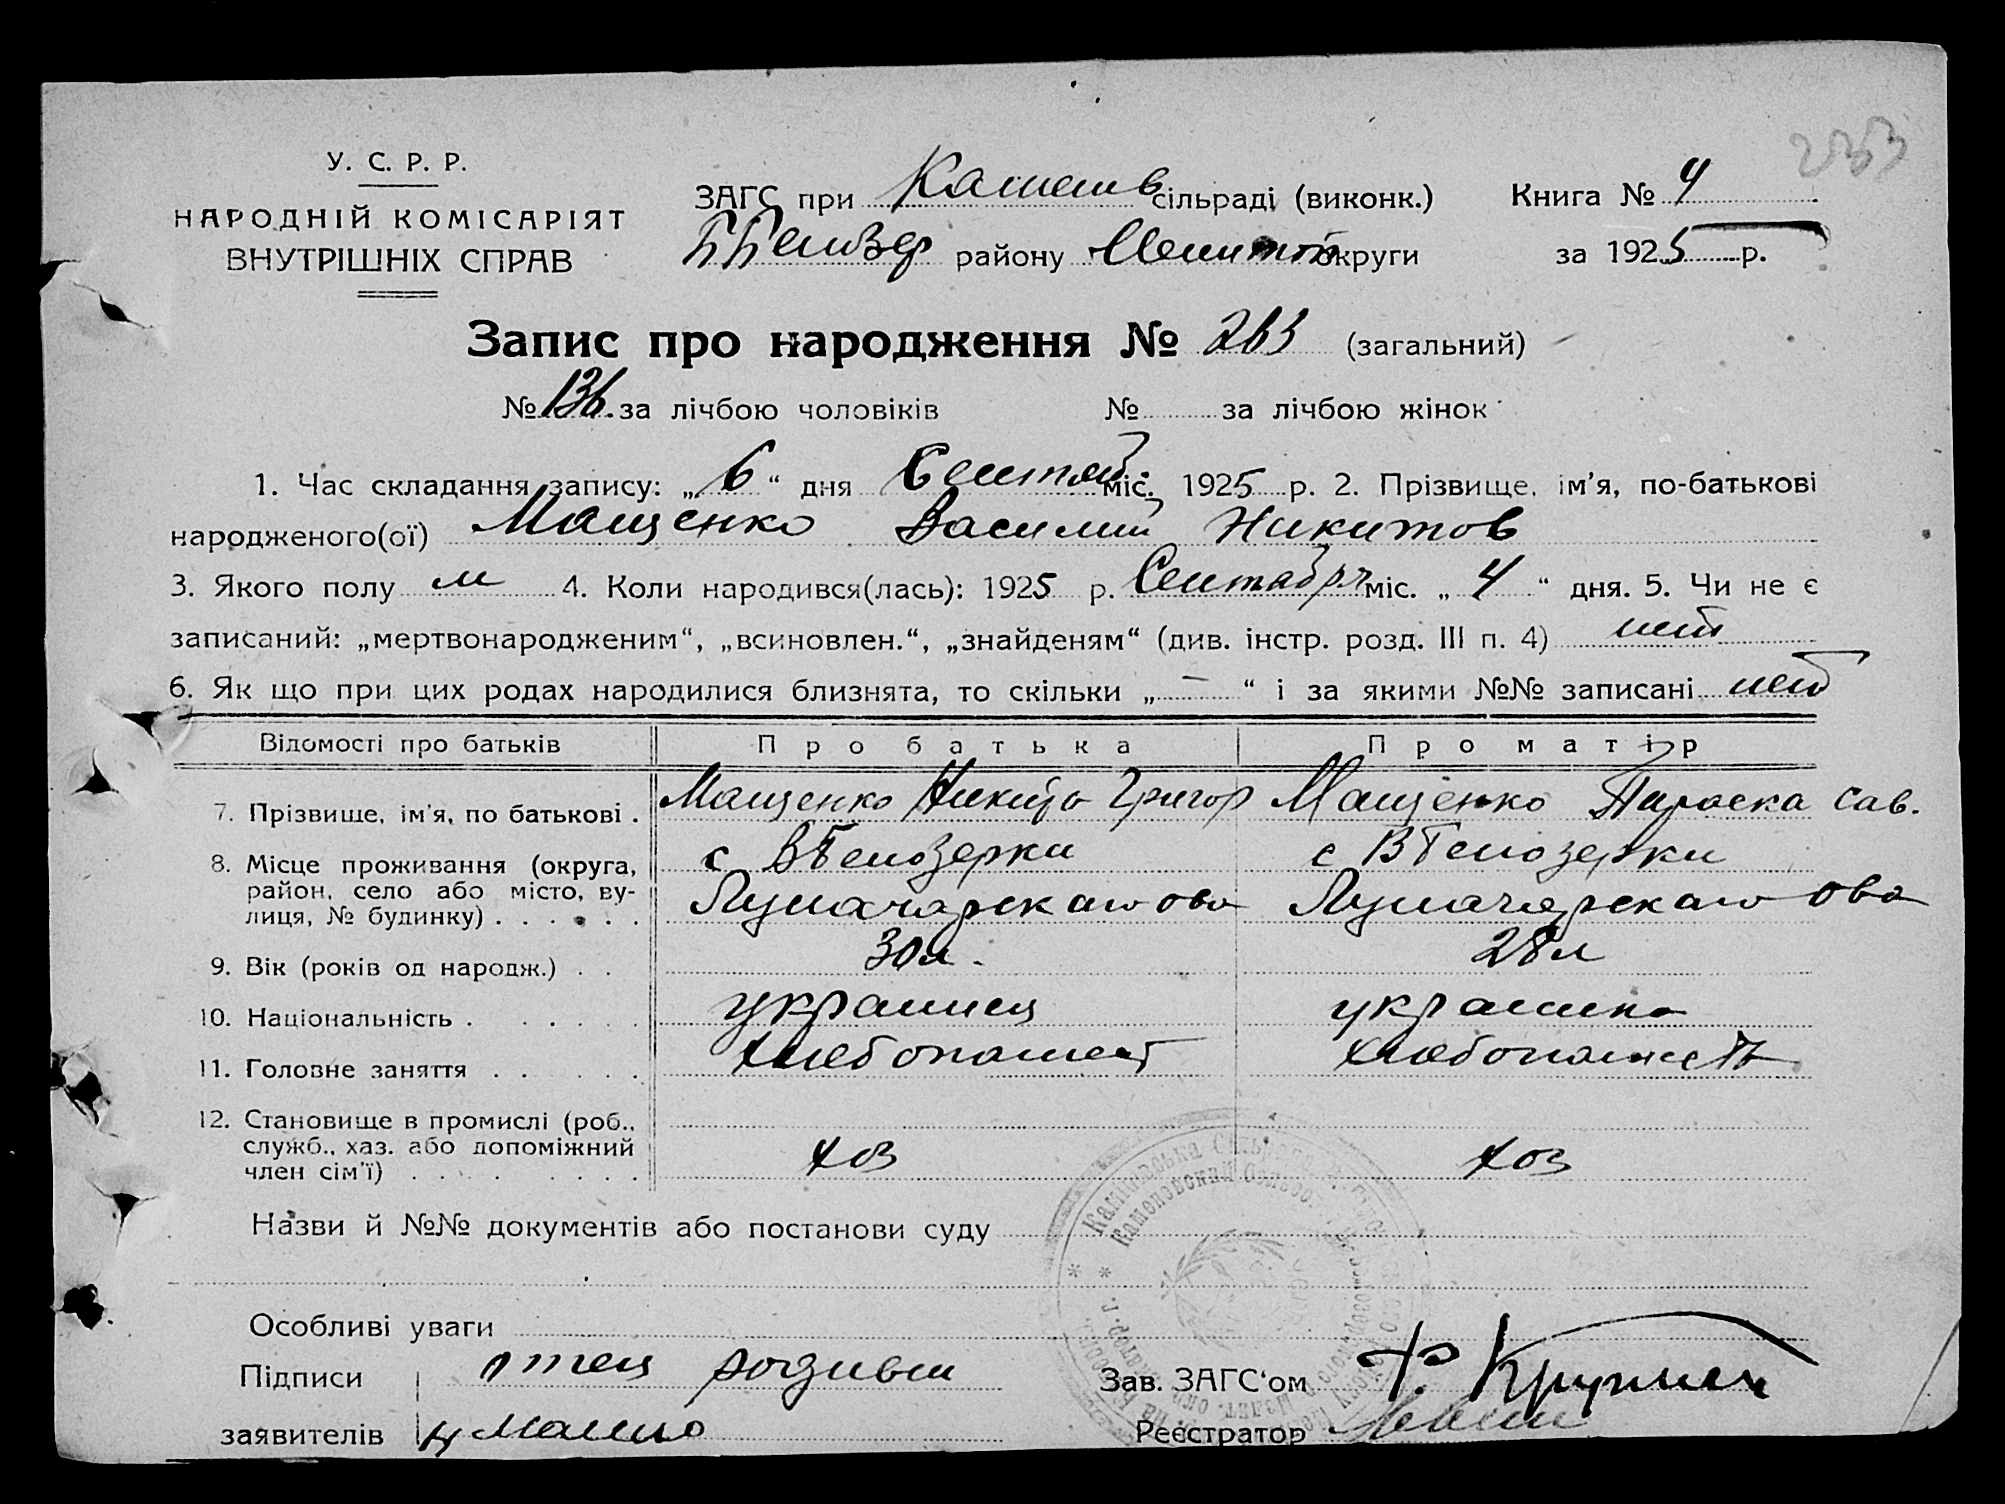 233
У. С. Р. Р.
НАРОДНІЙ КОМІСАРІЯТ
ВНУТРІШНІХ СПРАВ
ЗАГС при сільраді (виконк.) Книга № 4
району округи за 1925 р.
Запис про народження № (загальний)
№ 136 за лічбою чоловіків № за лічбою жінок
1. Час складання запису: „ 6 “ дня Сентяб міс. 1925 р. 2. Прізвище, ім'я, по-батькові
народженого(ої) Мащенко Василий Никитов
3. Якого полу м 4. Коли народився(лась): 1925 р. Сентября міс. „ 4 “ дня. 5. Чи не є
записаний: „мертвонародженим“, „всиновлен.“, „знайденям“ (див. інстр. розд. III п. 4) нет
6. Як що при цих родах народилися близнята, то скільки „ — “ і за якими №№ записані нет
Відомості про батьків Про батька Про матір
7. Прізвище, ім'я, по батькові . Мащенко Никита Григор Мащенко Параска Сав.
8. Місце проживання (округа, с ВБелозерки с ВБелозерки
район, село або місто, ву-
лиця, № будинку) . . . . . . Луначарскаго Луначарскаго
9. Вік (років од народж.) . . 30 л. 28 л
10. Національність . . . . . . украинец украинка
11. Головне заняття . . . . . хлебопашест хлебопашеств
12. Становище в промислі (роб.,
служб., хаз. або допоміжний хоз хоз
член сім'ї) . . . . . . . .
Назви й №№ документів або постанови суду
Особливі уваги
Підписи отец Зав. ЗАГС'ом
заявителів Реєстратор